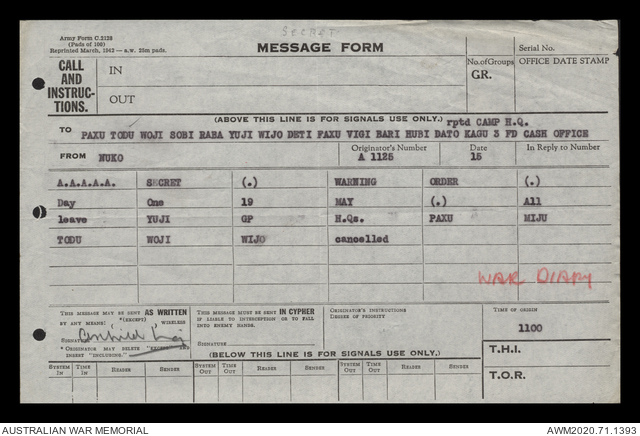 Secret
Army Form C.2128
(Pads of 100)
Reprinted March, 1943 — a.w. 25m pads.
MESSAGE FORM
Serial No.
CALL AND INSTRUC-TIONS.
IN
OUT
No. of Groups
GR.
OFFICE DATE STAMP
(ABOVE THIS LINE IS FOR SIGNALS USE ONLY.) rptd CAMP H.Q.
TO PAXU TODU WOJI SOBI RABA YUJI WIJO DETI FAXU VIGI BARI HUBI DATO KAGU 3 FD CASH OFFICE
FROM NUKO
Originator's Number
A 1125
Date
15
In Reply to Number
A.A.A.A.A. SECRET (.) WARNING ORDER (.)
Day One 19 MAY (.) All
leave YUJI GP H.Qs. PAXU MIJU
TODU WOJI WIJO cancelled
WAR DIARY
THIS MESSAGE MAY BE SENT AS WRITTEN
BY ANY MEANS *(EXCEPT) WIRELESS
SIGNATURE
* ORIGINATOR MAY DELETE "EXCEPT" AND INSERT "INCLUDING."
THIS MESSAGE MUST BE SENT IN CYPHER
IF LIABLE TO INTERCEPTION OR TO FALL INTO ENEMY HANDS.
SIGNATURE
ORIGINATOR'S INSTRUCTIONS
DEGREE OF PRIORITY
TIME OF ORIGIN
1100
(BELOW THIS LINE IS FOR SIGNALS USE ONLY.)
T.H.I.
T.O.R.
SYSTEM IN TIME IN READER SENDER SYSTEM OUT TIME OUT READER SENDER SYSTEM OUT TIME OUT READER SENDER
AUSTRALIAN WAR MEMORIAL
AWM2020.71.1393